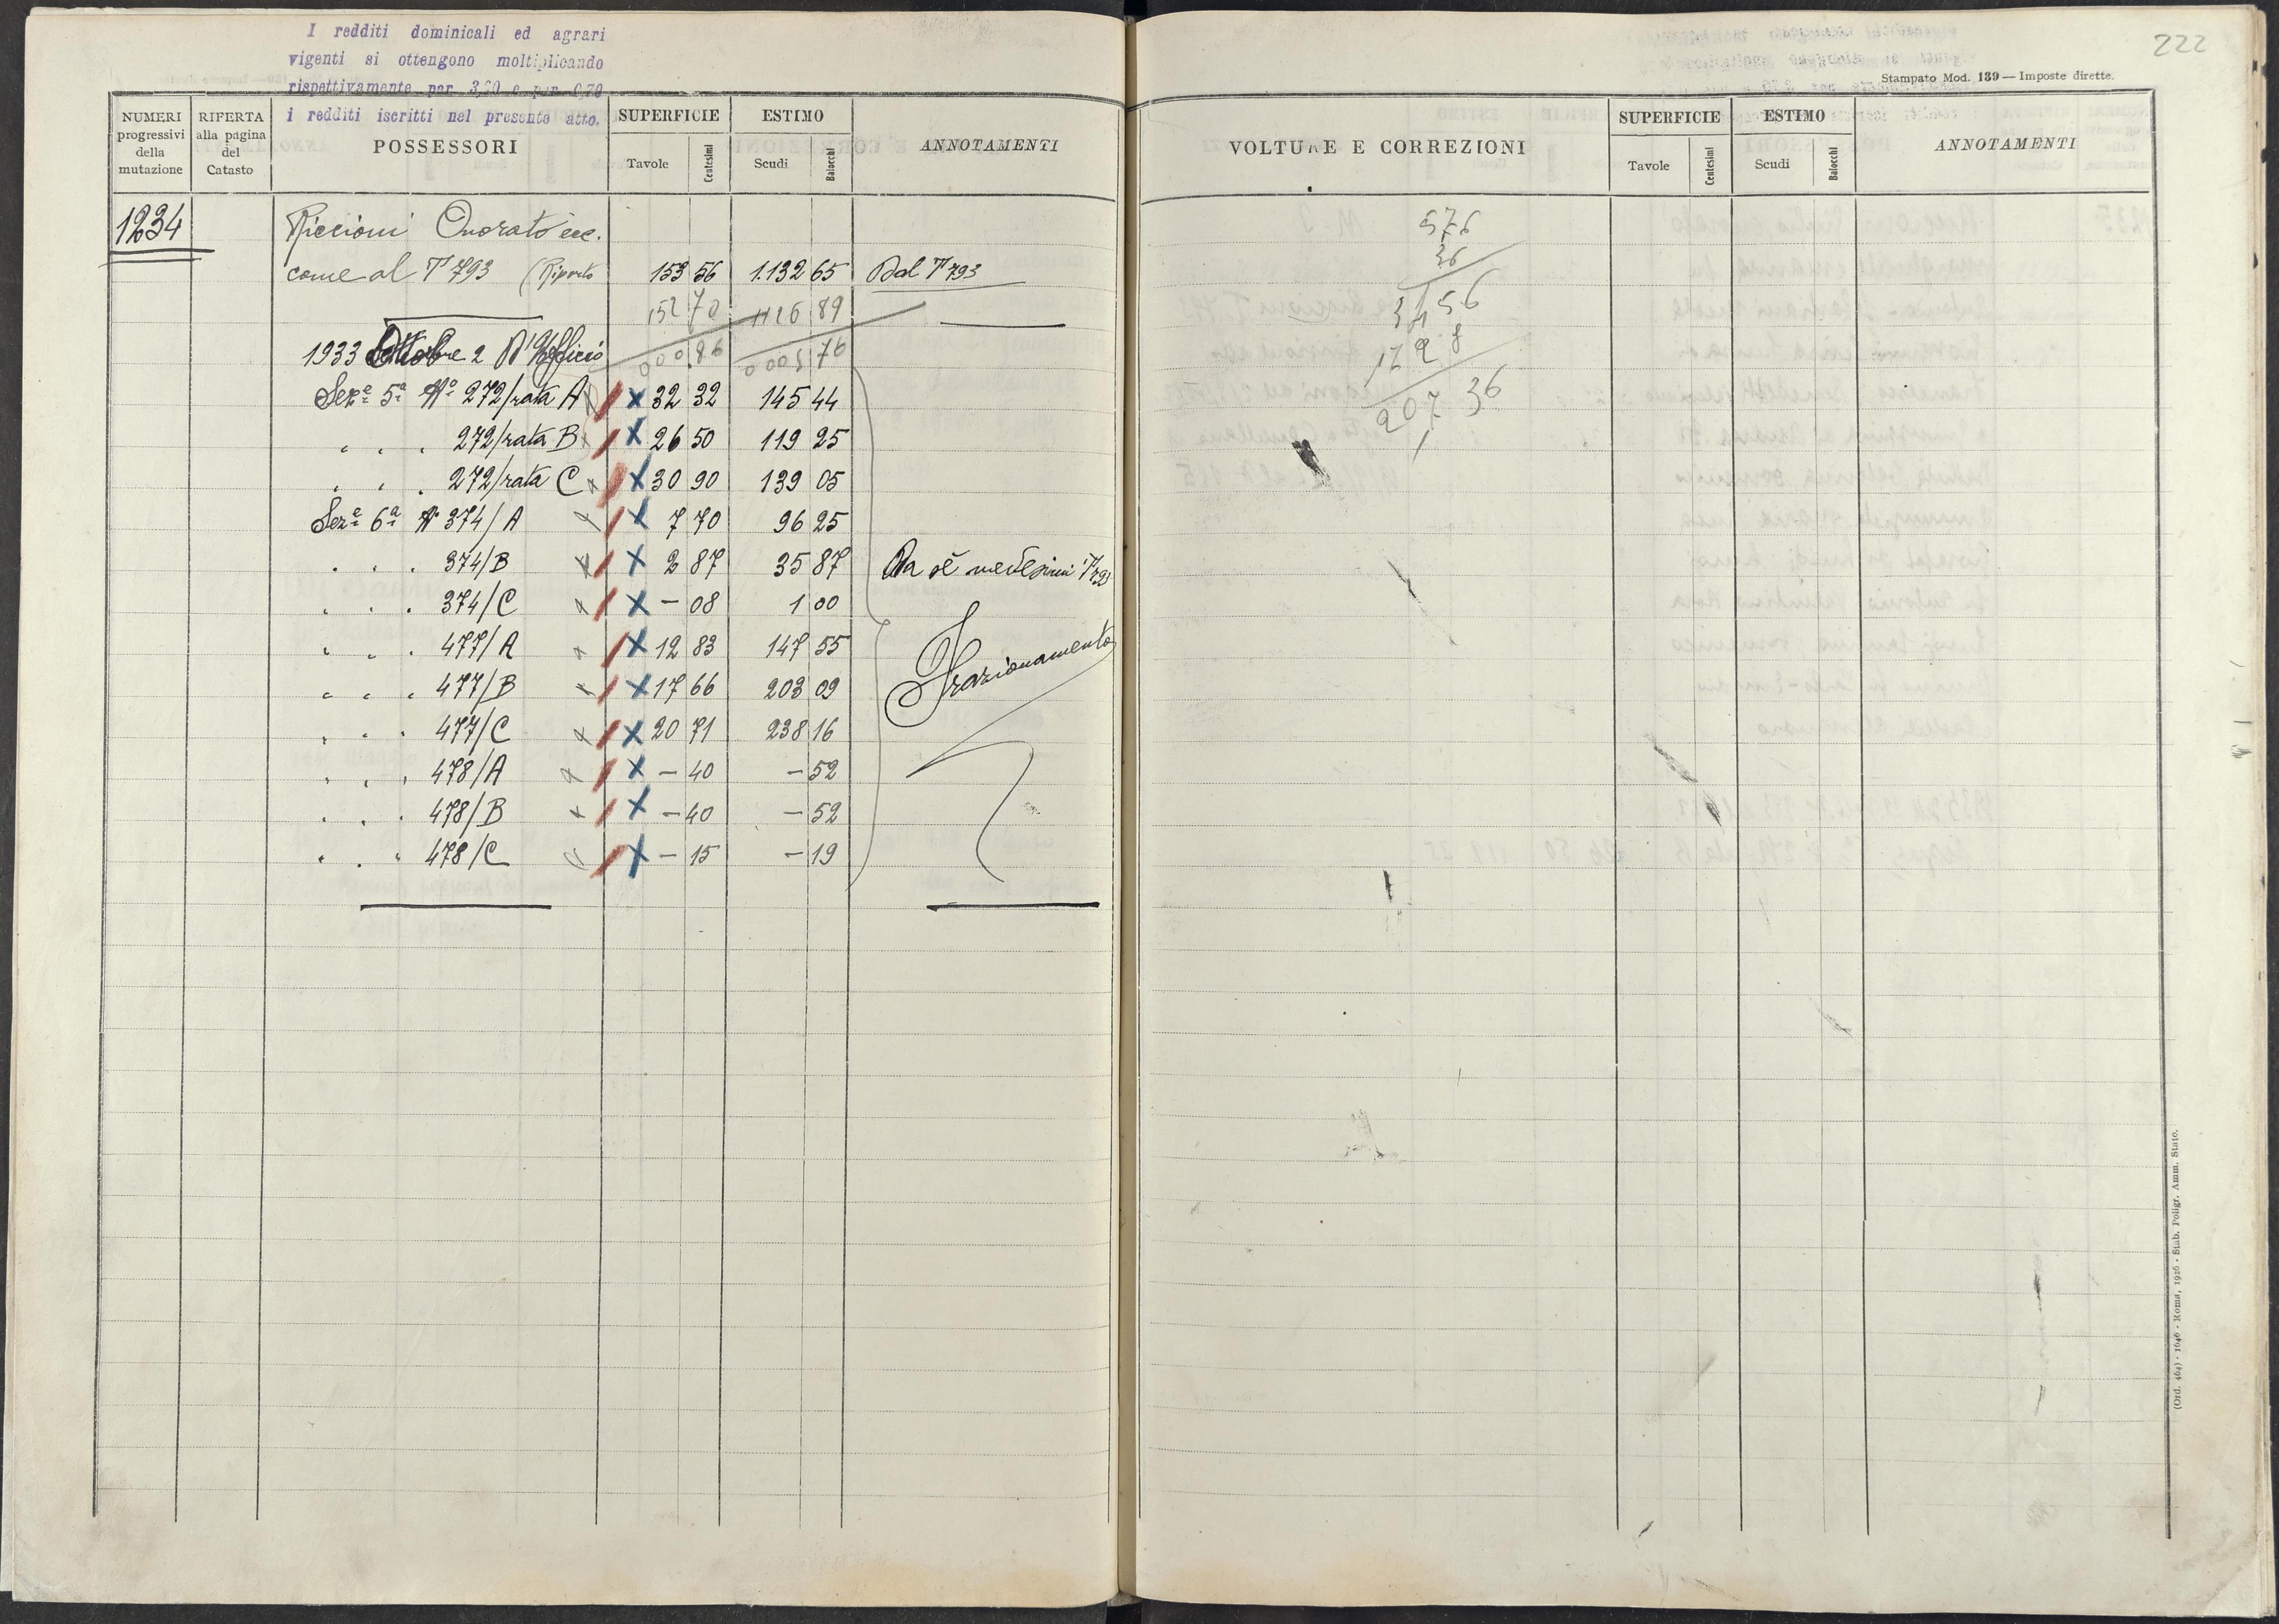 I redditi dominicali ed agrari
vigenti si ottengono moltiplicando
rispettivamente per 3,60 e per 0,70
i redditi iscritti nel presente atto.
NUMERI progressivi della mutazione
RIFERTA alla pagina del Catasto
POSSESSORI
SUPERFICIE
Tavole
Centesimi
ESTIMO
Scudi
Baiocchi
ANNOTAMENTI
1234
Riccioni Onorato ecc.
come al T 793 (Riporto 153 56 1.132 65 Dal T 793
152 70 1126 89
1933 Ottobre 2 D'Ufficio 000 86 0005 76
Seze 5a No 272/rata A x 32 32 145 44
" " " 272/rata B x 26 50 119 25
" " " 272/rata C x 30 90 139 05
Seze 6a No 374/A x 7 70 96 25
" " " 374/B x 2 87 35 87 Da sè medesimi T 793
" " " 374/C x – 08 1 00
" " " 477/A x 12 83 147 55 Frazionamento
" " " 477/B x 17 66 203 09
" " " 477/C x 20 71 238 16
" " " 478/A x – 40 – 52
" " " 478/B x – 40 – 52
" " " 478/C x – 15 – 19
222
Stampato Mod. 139 — Imposte dirette.
VOLTURE E CORREZIONI
SUPERFICIE
Tavole
Centesimi
ESTIMO
Scudi
Baiocchi
ANNOTAMENTI
576
36
3456
1728
207 36
(Ord. 464) - 1646 - Roma, 1926 - Stab. Poligr. Amm. Stato.